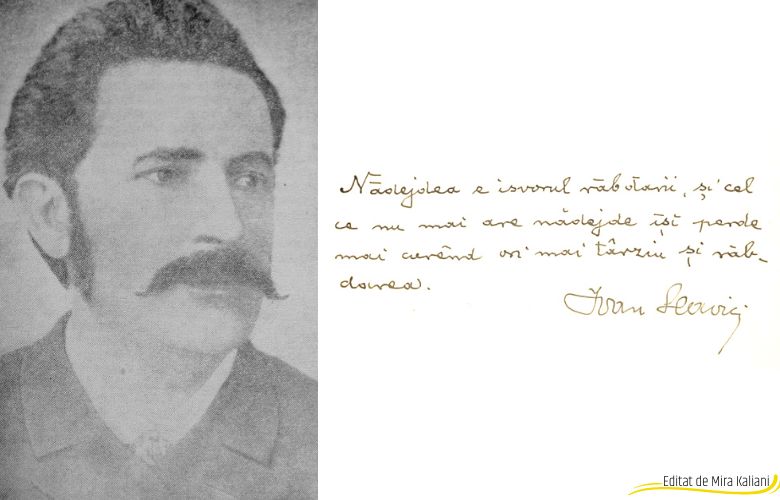 Nădejdea e isvorul răbdării, și cel
ce nu mai are nădejde își perde
mai curênd ori mai târziu și răb-
darea.
Ioan Slavici
Editat de Mira Kaliani